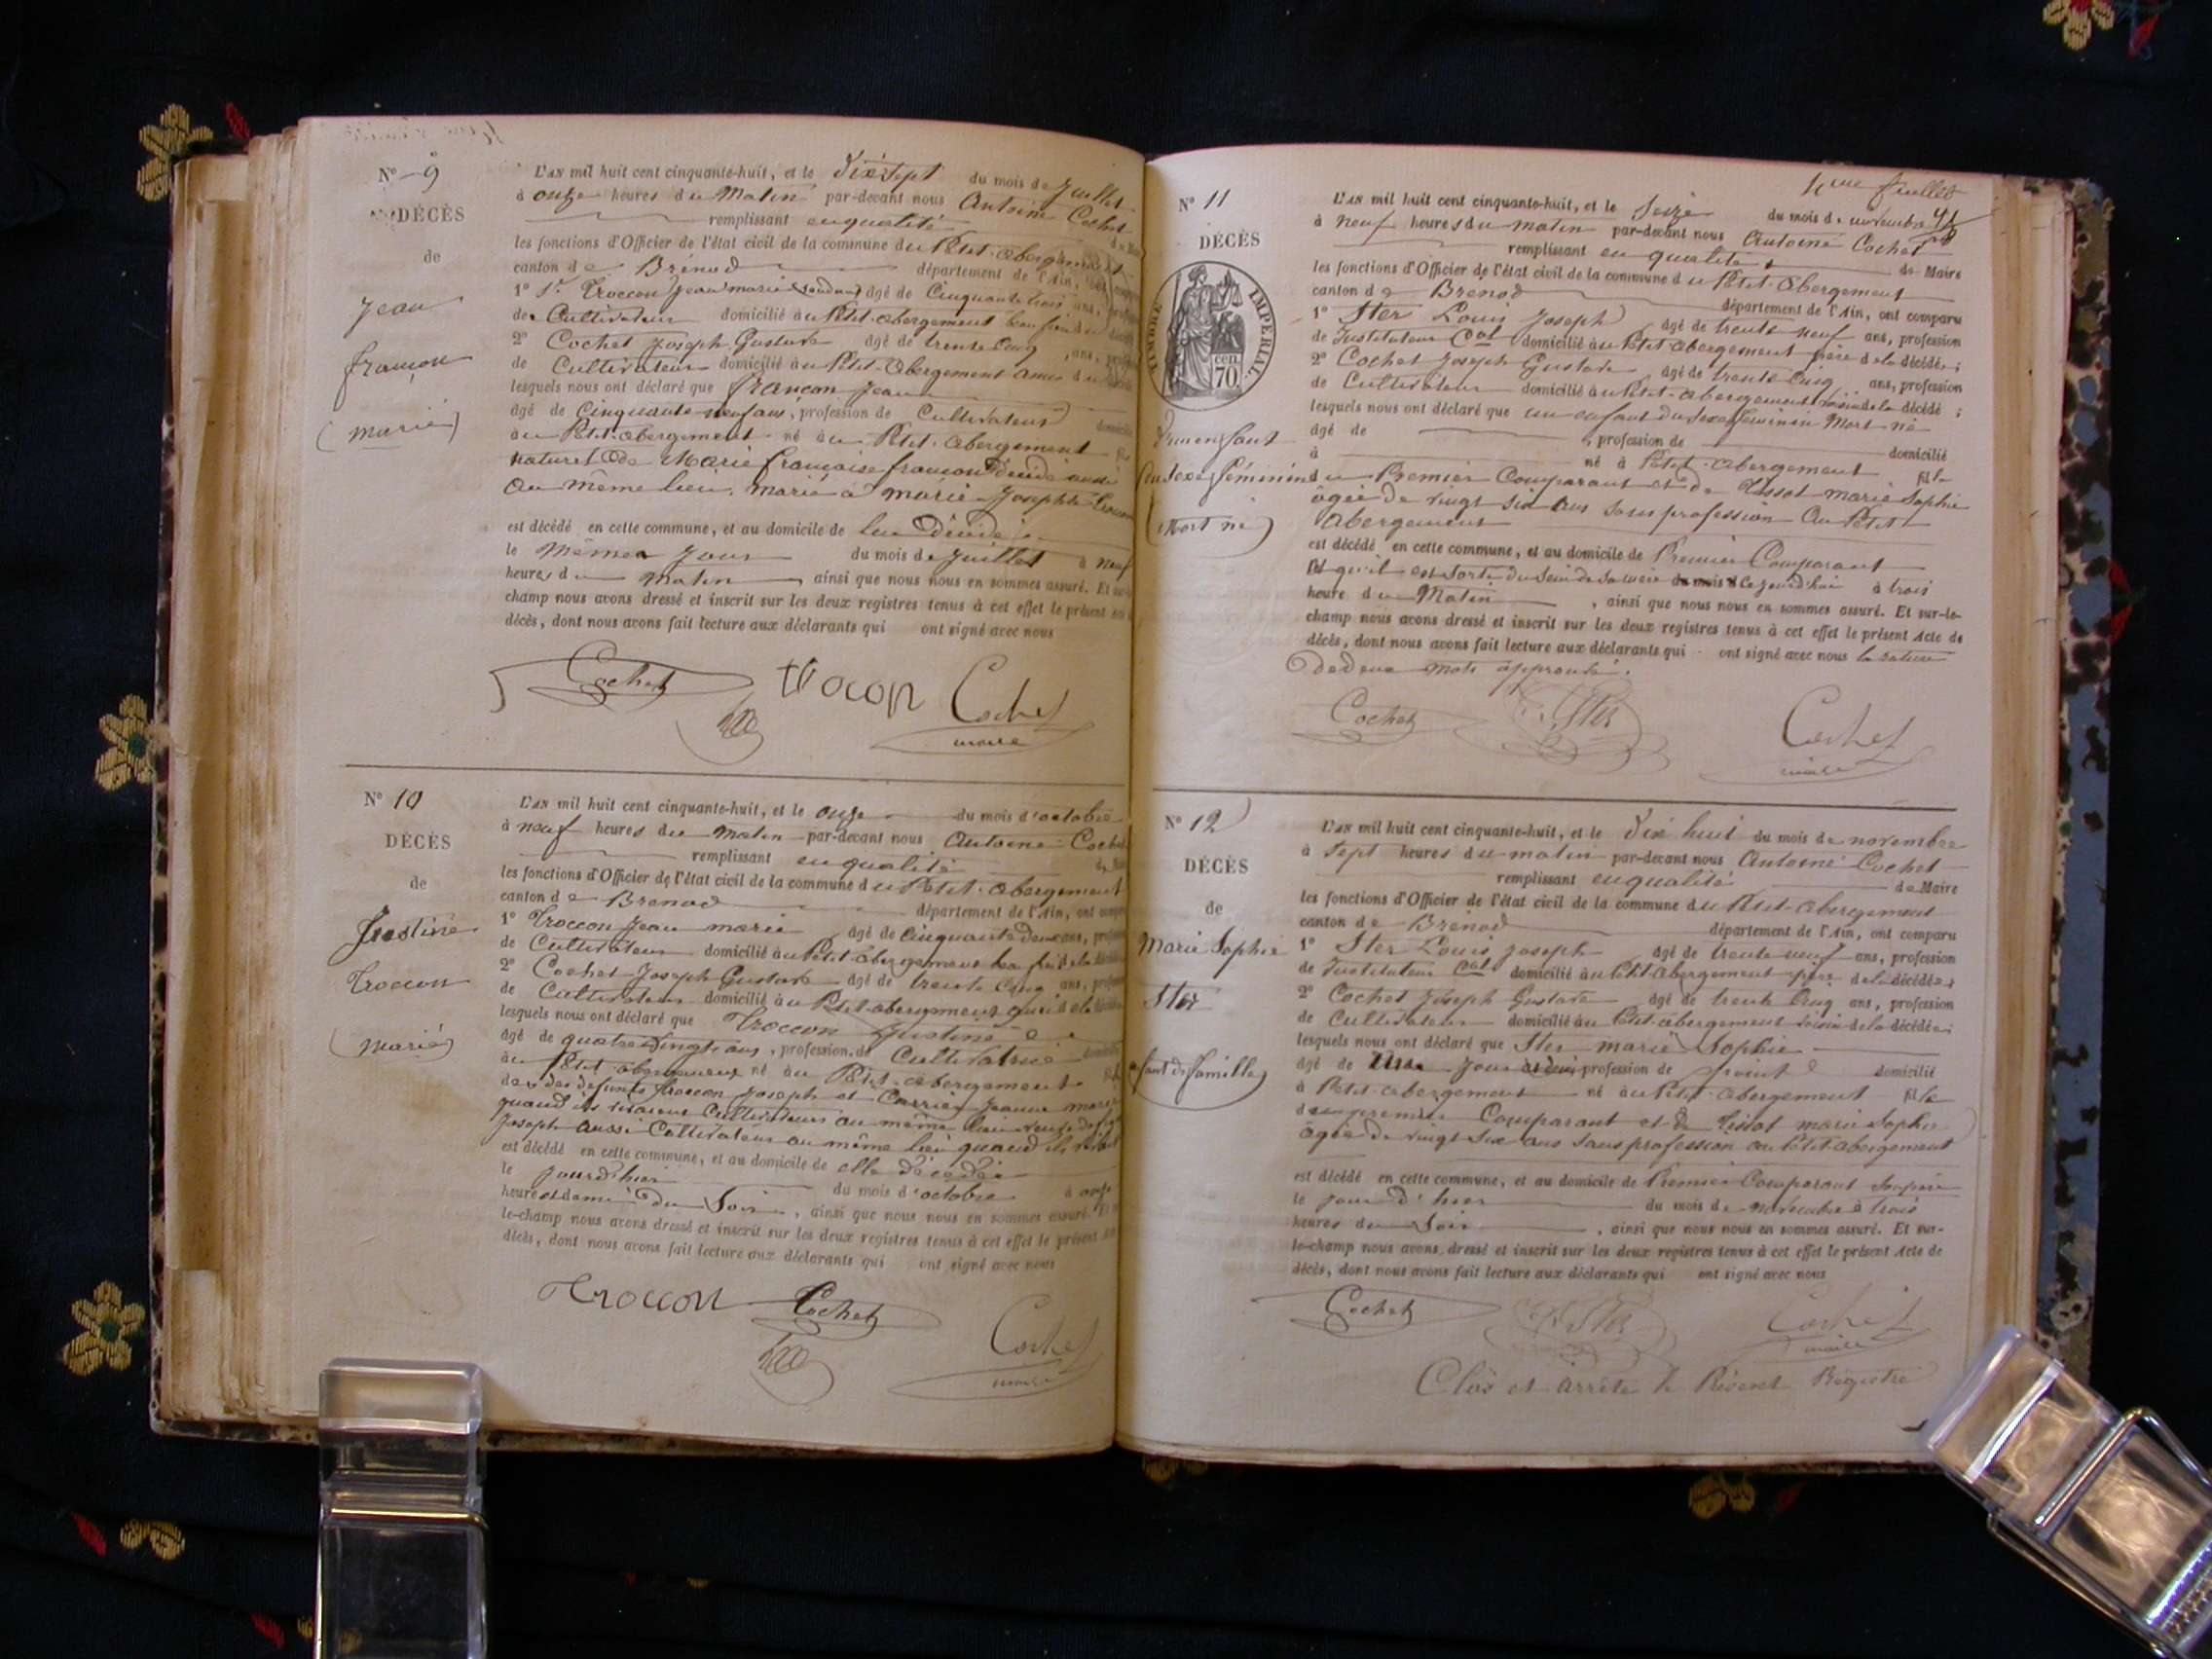 N° 9
DÉCÈS
de
Jean
françon
(marié)
L'AN mil huit cent cinquante-huit, et le dix sept du mois de Juillet
à onze heures du Matin par-devant nous Antoine Cochet
remplissant en qualité de
les fonctions d'Officier de l'état civil de la commune du Petit-abergement
canton de Brénod département de l'Ain, ont
1° Troccon Jean marie âgé de Cinquante trois ans,
de Cultivateur domicilié au Petit-abergement beau frère du
2° Cochet Joseph Gustave âgé de trente Cinq ans,
de Cultivateur domicilié à Petit-abergement amis du
lesquels nous ont déclaré que françon Jean
âgé de Cinquante neuf ans, profession de Cultivateur
au Petit-abergement né au Petit-abergement
naturel de Marie françoise françon Décédée aussi
au même lieu, marié à marie Josephte
est décédé en cette commune, et au domicile de lui Décédé
le même Jour du mois de Juillet à neuf
heures du matin, ainsi que nous nous en sommes assuré. Et
champ nous avons dressé et inscrit sur les deux registres tenus à cet effet le présent
décès, dont nous avons fait lecture aux déclarants qui ont signé avec nous
Cochet trocon Cochet
maire
N° 10
DÉCÈS
de
Justine
Troccon
(marié)
L'AN mil huit cent cinquante-huit, et le onze du mois d'octobre
à neuf heures du matin par-devant nous Antoine Cochet
remplissant en qualité
les fonctions d'Officier de l'état civil de la commune du Petit-abergement
canton de Brénod département de l'Ain, ont
1° Troccon Jean marie âgé de cinquante deux ans,
de Cultivateur domicilié au Petit abergement beau frère de la
2° Cochet Joseph Gustave âgé de trente Cinq ans,
de Cultivateur domicilié au Petit-abergement
lesquels nous ont déclaré que Troccon Justine
âgé de quatre vingts ans, profession de Cultivatrice
au Petit abergement né au Petit-abergement
des défunts troccon Joseph et Carrier Jeanne marie
quand ils vivaient Cultivateurs au même lieu veuve de
Joseph aussi Cultivateur au même lieu quand il
est décédé en cette commune, et au domicile de elle décédée
le jour d'hier du mois d'octobre à onze
heures et demie du Soir, ainsi que nous nous en sommes assuré. Et
le-champ nous avons dressé et inscrit sur les deux registres tenus à cet effet le présent
décès, dont nous avons fait lecture aux déclarants qui ont signé avec nous
Troccon Cochet
Cochet
maire
feuillet
N° 11
DÉCÈS
TIMBRE IMPÉRIAL
70 cen.
D'un enfant
du Sexe féminin
(Mort né)
L'AN mil huit cent cinquante-huit, et le Seize du mois de novembre
à neuf heures du matin par-devant nous Antoine Cochet
remplissant en qualité de Maire
les fonctions d'Officier de l'état civil de la commune du Petit-abergement
canton de Brénod département de l'Ain, ont comparu
1° Ster Louis Joseph âgé de trente neuf ans, profession
de Instituteur Cal domicilié au Petit-abergement père de la décédée;
2° Cochet Joseph Gustave âgé de trente Cinq ans, profession
de Cultivateur domicilié au Petit-abergement voisin de la décédé;
lesquels nous ont déclaré que un enfant du sexe féminin Mort né
âgé de , profession de domicilié
à né à Petit-abergement fille
du Premier Comparant et de Tissot marie Sophie
âgée de vingt six ans sans profession au Petit
abergement
est décédé en cette commune, et au domicile de Premier Comparant
et qu'il est sorti du sein de sa mère du mois d Cejourd'hui à trois
heure du Matin, ainsi que nous nous en sommes assuré. Et sur-le-
champ nous avons dressé et inscrit sur les deux registres tenus à cet effet le présent Acte de
décès, dont nous avons fait lecture aux déclarants qui ont signé avec nous la rature
de deux mots approuvé.
Cochet Ster Cochet
maire
N° 12
DÉCÈS
de
Marie Sophie
Ster
enfant de famille)
L'AN mil huit cent cinquante-huit, et le dix huit du mois de novembre
à Sept heures du matin par-devant nous Antoine Cochet
remplissant en qualité de Maire
les fonctions d'Officier de l'état civil de la commune du Petit-abergement
canton de Brénod département de l'Ain, ont comparu
1° Ster Louis Joseph âgé de trente neuf ans, profession
de Instituteur Cal domicilié au Petit abergement père de la décédée;
2° Cochet Joseph Gustave âgé de trente Cinq ans, profession
de Cultivateur domicilié au Petit-abergement voisin de la décédée;
lesquels nous ont déclaré que Ster marie Sophie
âgé de Jour et demi profession de point domicilié
à Petit-abergement né au Petit-abergement fille
du premier Comparant et de Tissot marie Sophie
âgée de vingt six ans sans profession au Petit abergement
est décédé en cette commune, et au domicile de Premier Comparant
le jour d'hier du mois de novembre à trois
heures du Soir, ainsi que nous nous en sommes assuré. Et sur-
le-champ nous avons dressé et inscrit sur les deux registres tenus à cet effet le présent Acte de
décès, dont nous avons fait lecture aux déclarants qui ont signé avec nous
Cochet Ster Cochet
maire
Clos et arrêté le Présent Registre